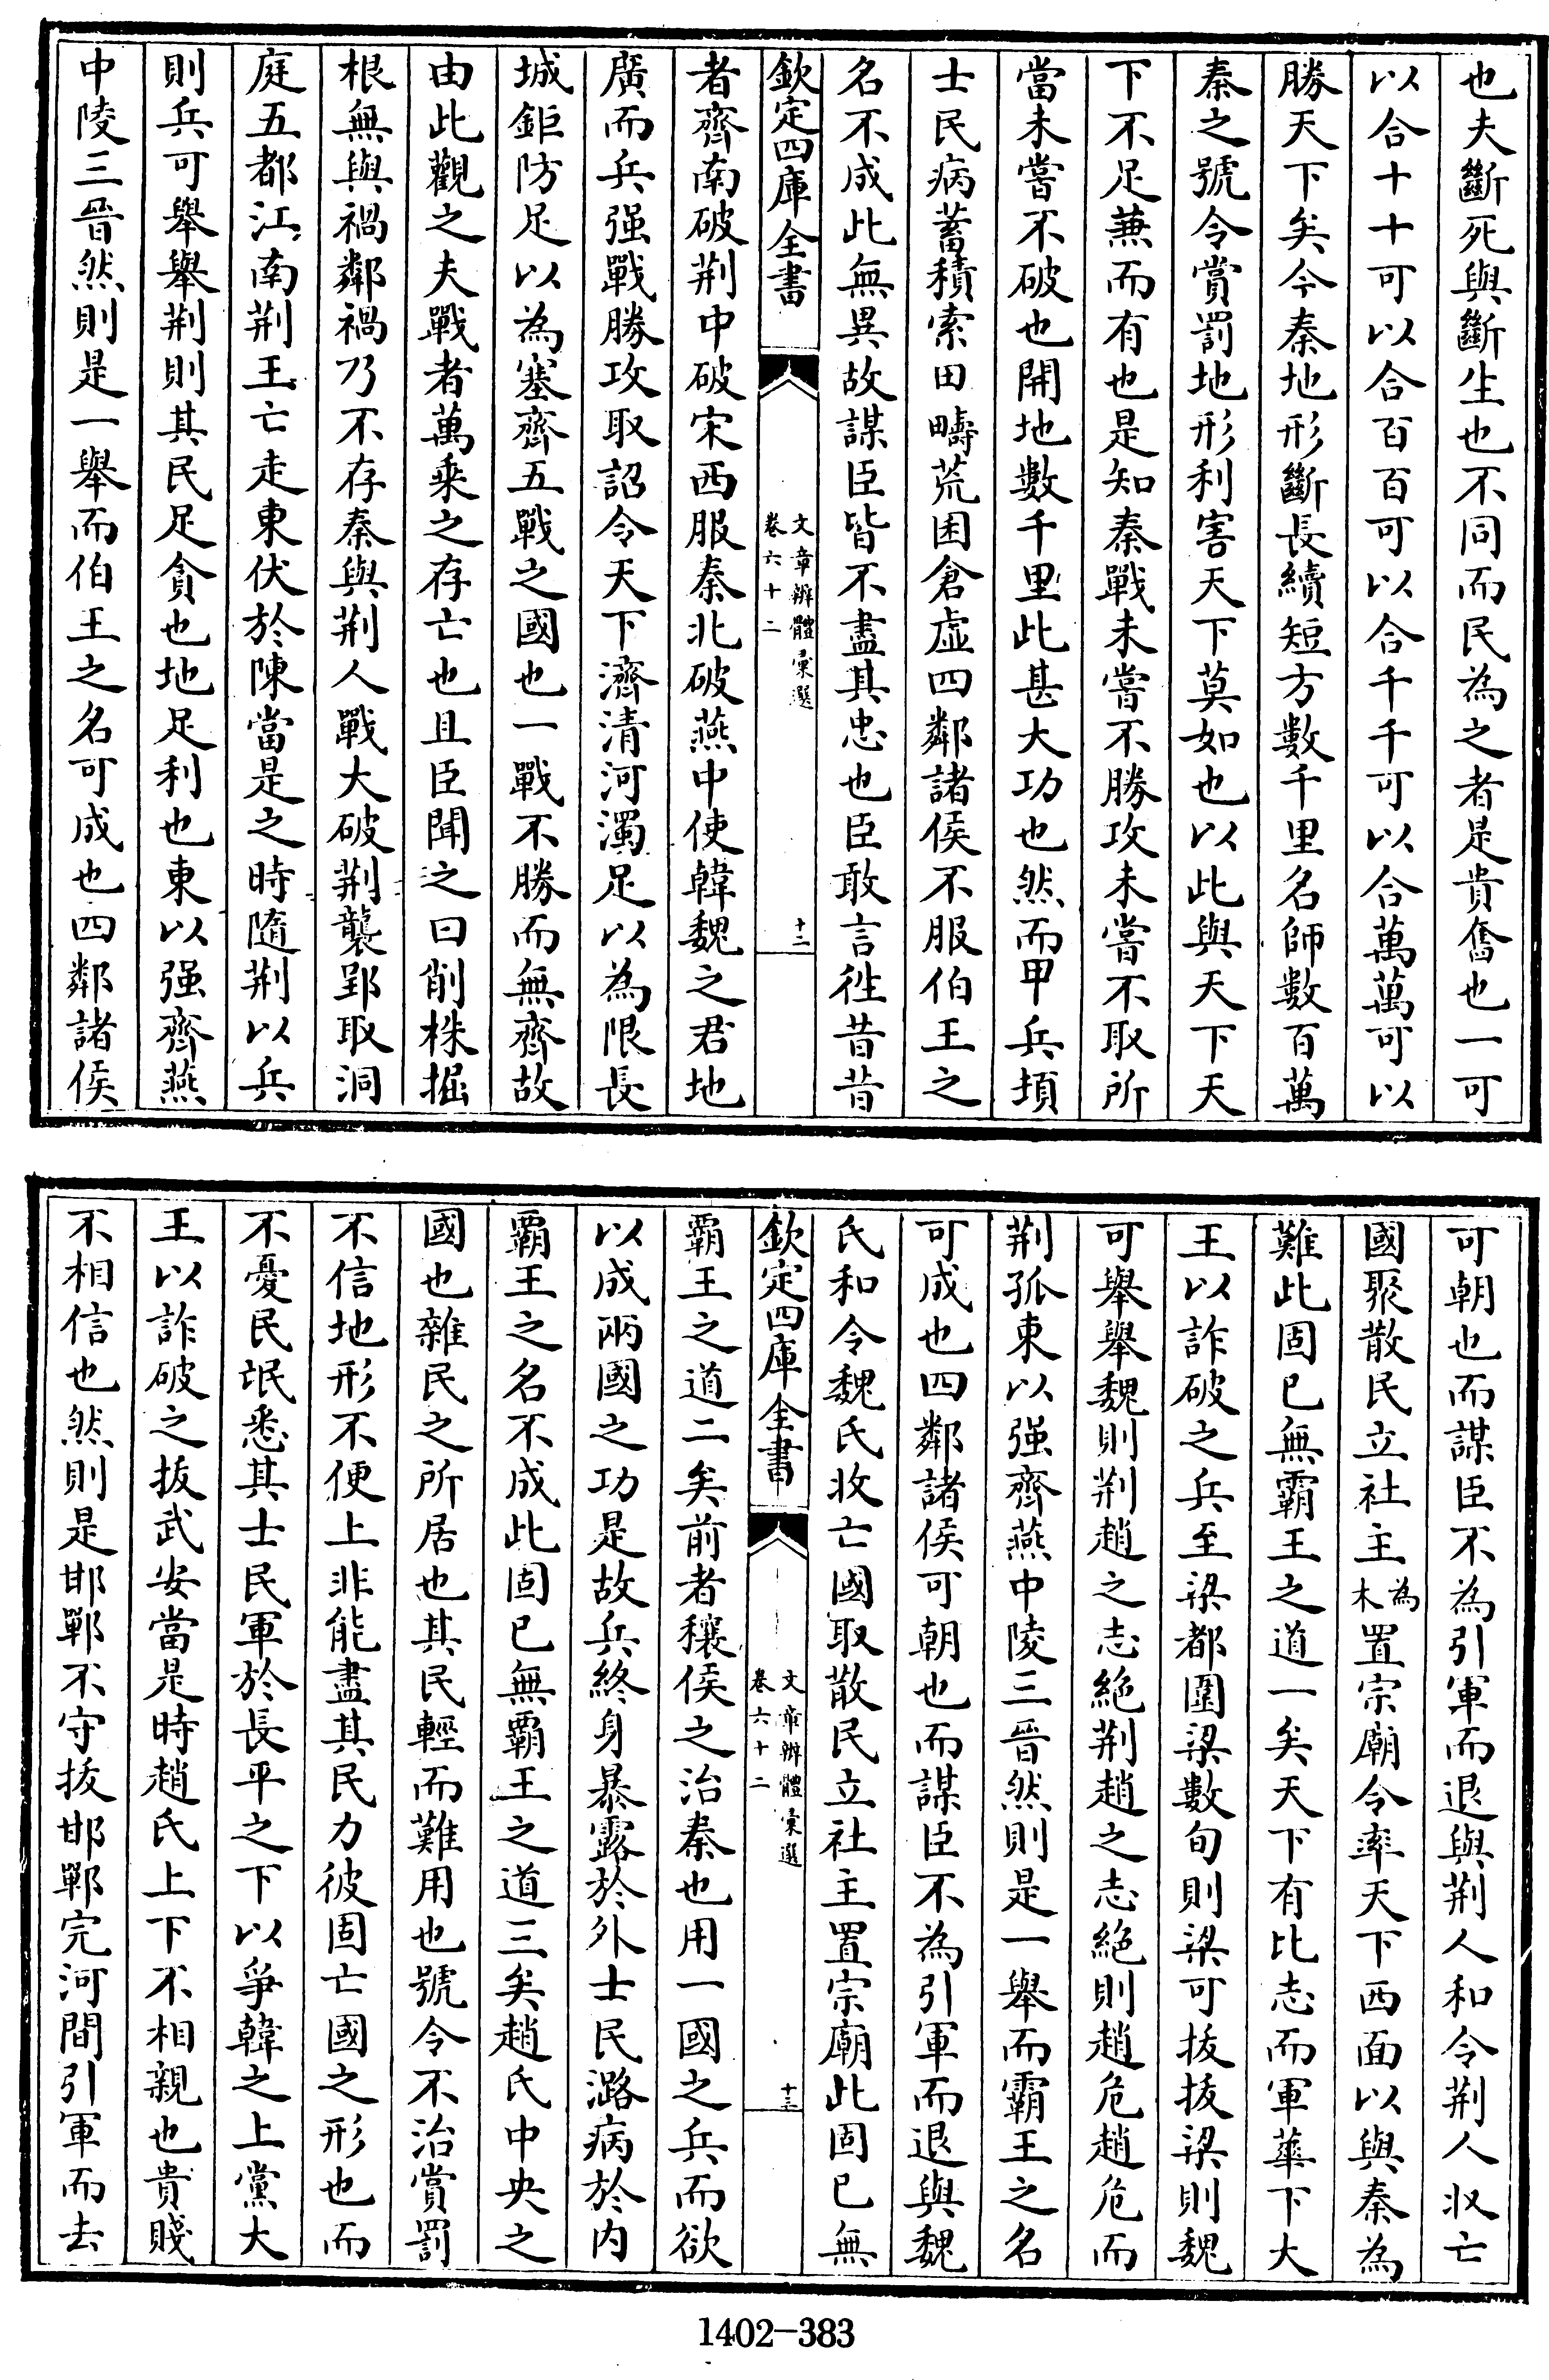 也夫斷死與斷生也不同而民為之者是貴奮也一可
以合十十可以合百百可以合千千可以合萬萬可以
勝天下矣今秦地形斷長續短方數千里名師數百萬
秦之號令賞罰地形利害天下莫如也以此與天下天
下不足兼而有也是知秦戰未嘗不勝攻未嘗不取所
當未嘗不破也開地數千里此甚大功也然而甲兵頓
士民病蓄積索田疇荒囷倉虛四鄰諸侯不服伯王之
名不成此無異故謀臣皆不盡其忠也臣敢言徃昔昔
欽定四庫全書
文章辨體彙選
卷六十二
十二
者齊南破荆中破宋西服秦北破燕中使韓魏之君地
廣而兵强戰勝攻取詔令天下濟清河濁足以為限長
城鉅防足以為塞齊五戰之國也一戰不勝而無齊故
由此觀之夫戰者萬乘之存亡也且臣聞之曰削株掘
根無與禍鄰禍乃不存秦與荆人戰大破荆襲郢取洞
庭五都江南荆王亡走東伏於陳當是之時隨荆以兵
則兵可舉舉荆則其民足貪也地足利也東以强齊燕
中陵三晉然則是一舉而伯王之名可成也四鄰諸侯
可朝也而謀臣不為引軍而退與荆人和令荆人収亡
國聚散民立社主為木置宗廟令率天下西面以與秦為
難此固已無霸王之道一矣天下有比志而軍華下大
王以詐破之兵至梁都圍梁數旬則梁可拔拔梁則魏
可舉舉魏則荆趙之志絶荆趙之志絶則趙危趙危而
荆孤東以强齊燕中陵三晉然則是一舉而霸王之名
可成也四鄰諸侯可朝也而謀臣不為引軍而退與魏
氏和令魏氏收亡國取散民立社主置宗廟此固已無
欽定四庫全書
文章辨體彙選
卷六十二
十三
霸王之道二矣前者穰侯之治秦也用一國之兵而欲
以成兩國之功是故兵終身暴露於外士民潞病於内
霸王之名不成此固已無霸王之道三矣趙氏中央之
國也雜民之所居也其民輕而難用也號令不治賞罰
不信地形不便上非能盡其民力彼固亡國之形也而
不憂民氓悉其士民軍於長平之下以爭韓之上黨大
王以詐破之拔武安當是時趙氏上下不相親也貴賤
不相信也然則是邯鄲不守拔邯鄲完河間引軍而去
1402-383